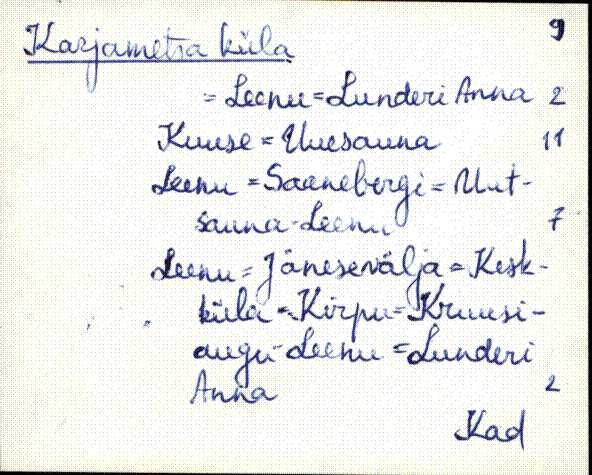 9
Karjametsa küla
= Leenu = Lunderi Anna 2
Kuuse = Uuesauna 11
Leenu = Saanebergi = Uut-
sauna-Leenu 7
Leenu = Jänesevälja = Kesk-
küla = Kirpu = Kruusi-
augu-Leenu = Lunderi
Anna 2
Kad